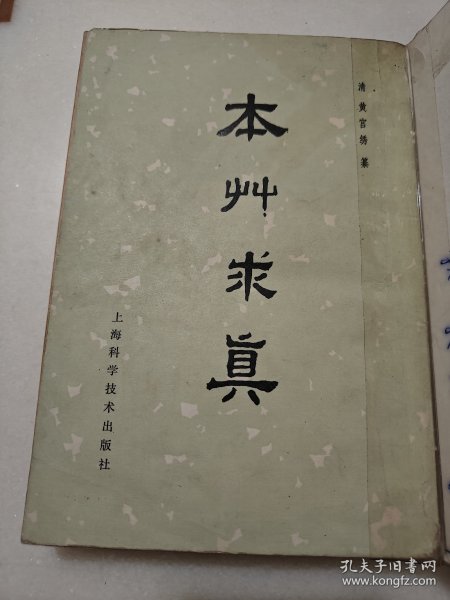 清 黄宫绣 纂
本艸求真
上海科学技术出版社
孔夫子旧书网
www.kongfz.com